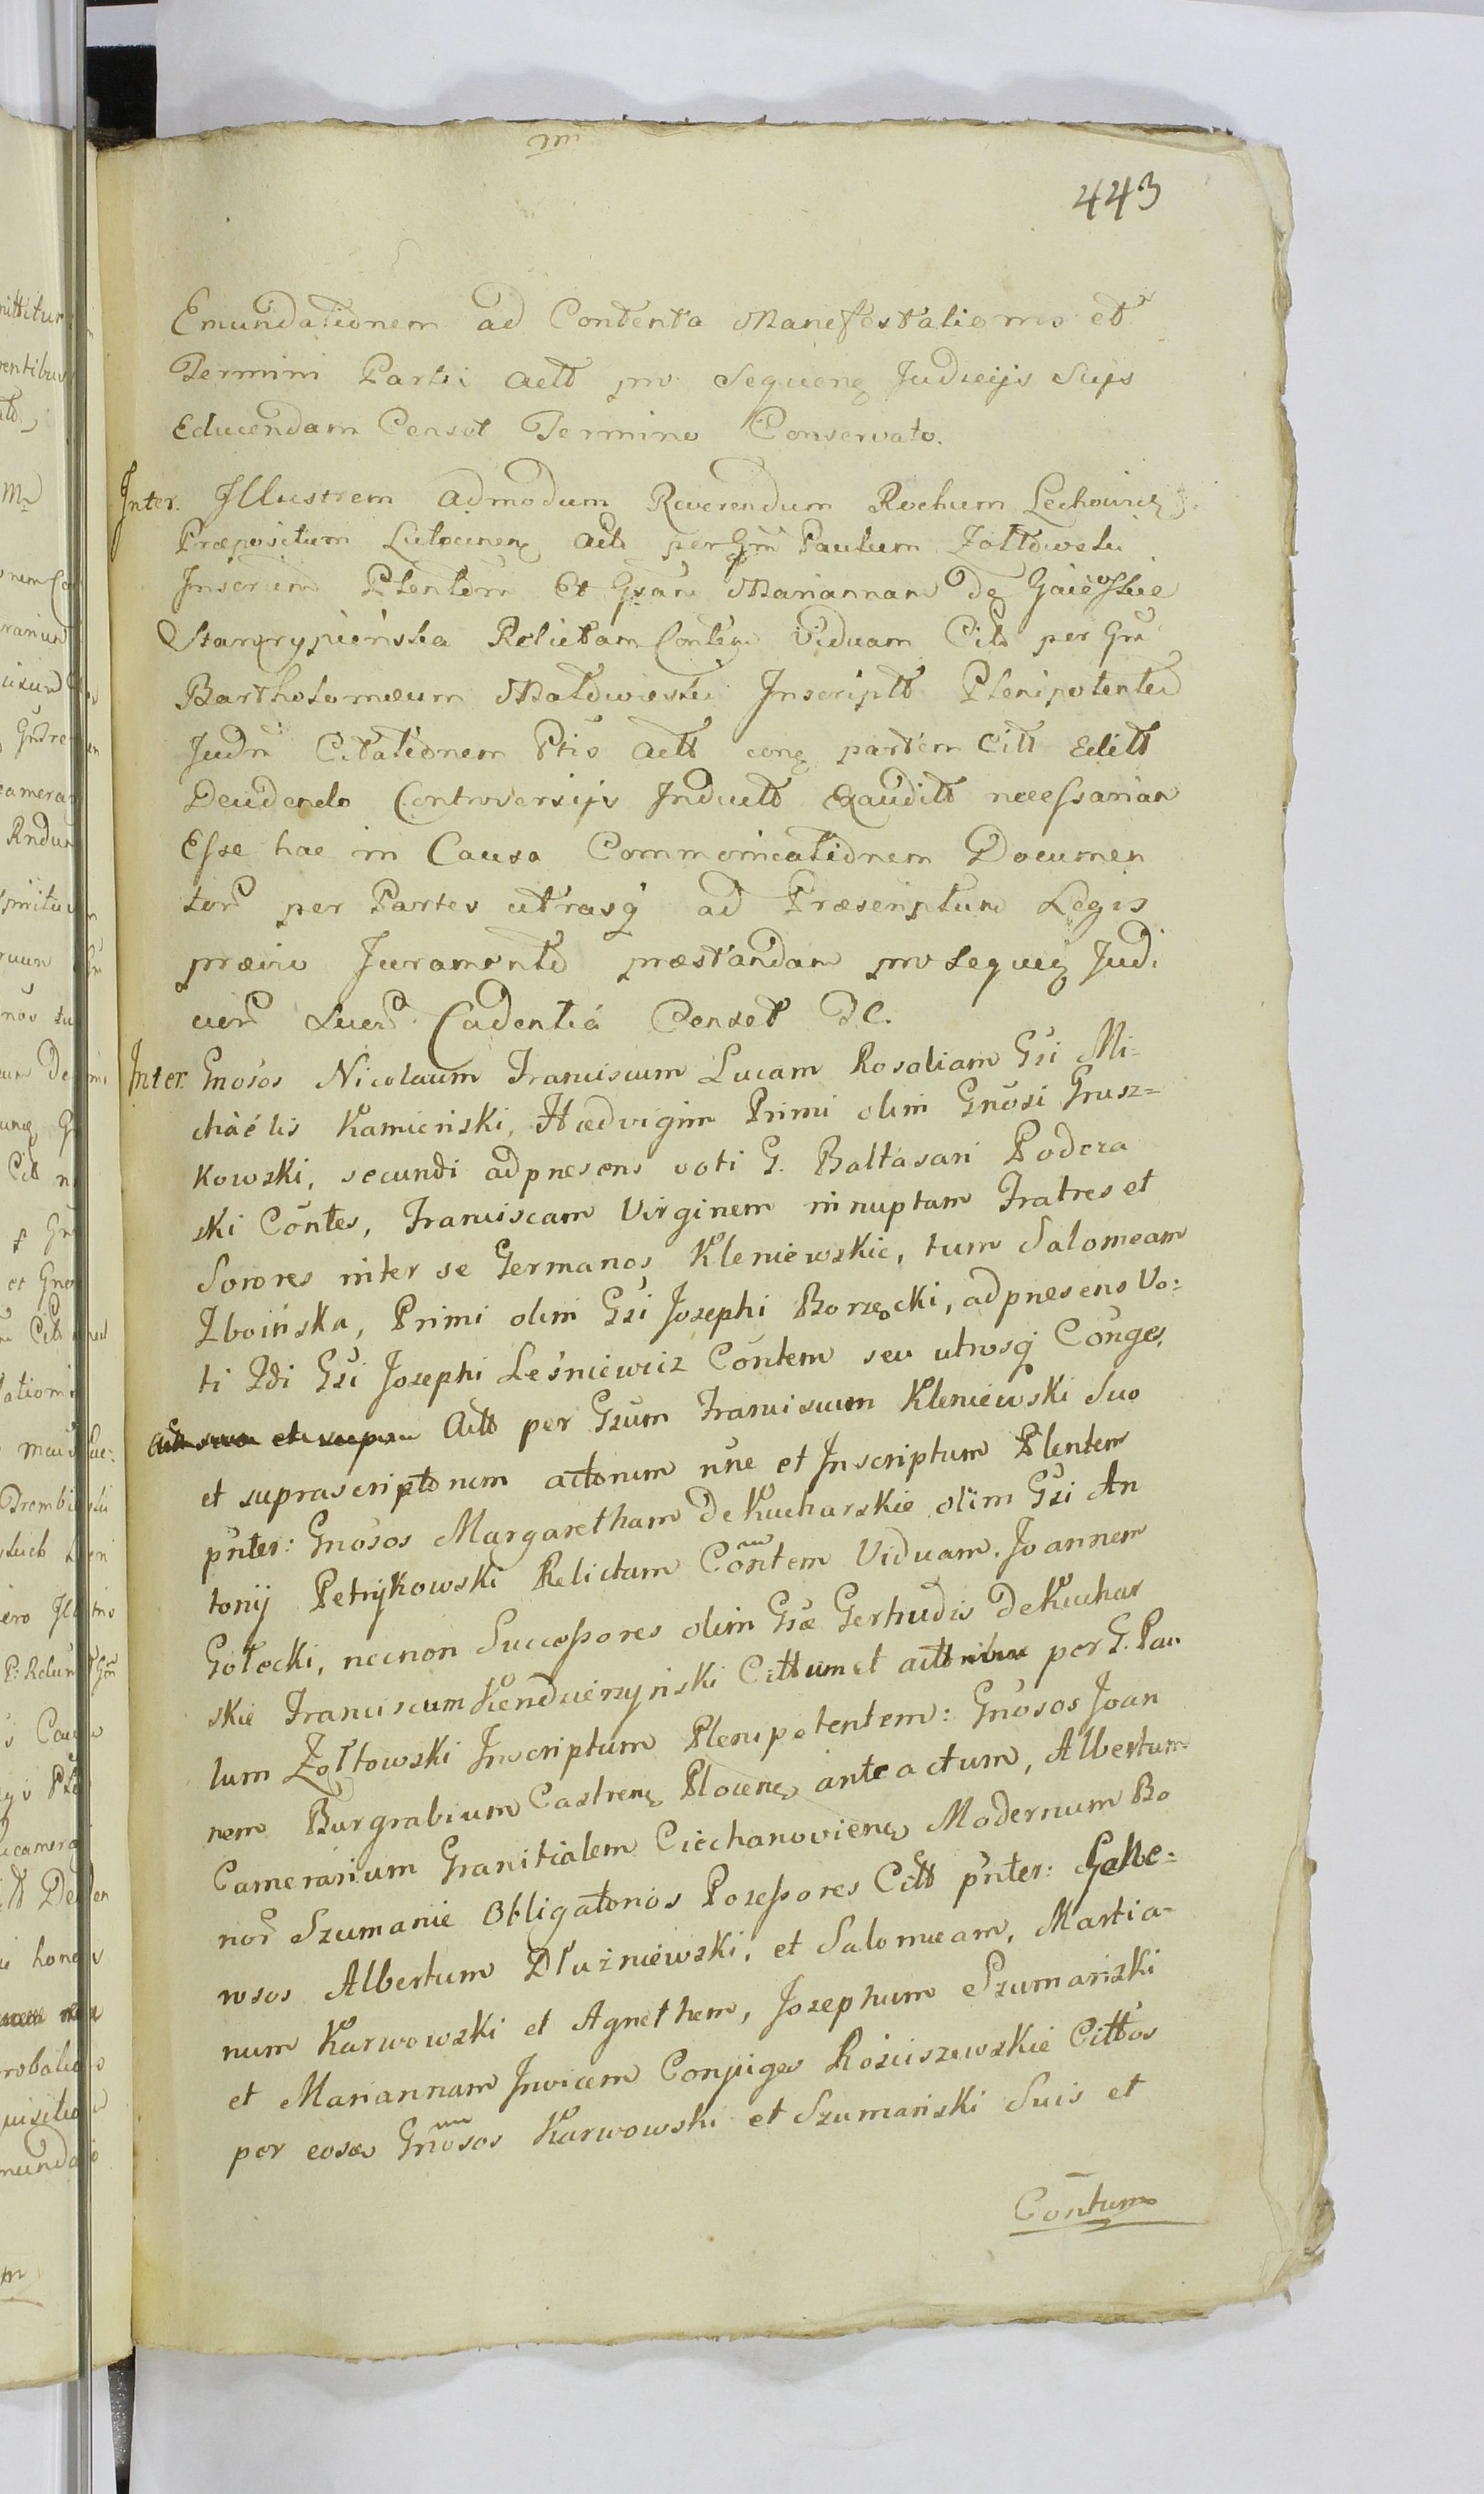 443
Emundationem ad Contenta Manifestationis et
Termini Parti Actt pro Sequenȝ Judicijs Sups
Educendam Censet Termino Conservato.
Inter. Illustrem admodum Reverendum Rochum Lechowicz
Præpositum Lutocinenȝ Actt per Gnm Paulum Zołtowski
Inscrum Plentem Et Gsam Mariannam de Gaiewskie
Starorypieńska Relictam Contem Viduam Citt per Gm
Bartholomæum Małowieski Inscriptt Plenipotentem
Judm Citationem Ptis Actt conȝ partem Citt Editt
Deudendo Controversijs Inductt Exauditt necessarian
Esse hac in Causa Communicationem Documen
tor per Partes utrasq ad Præscriptum Legis
prævio Juramento præstandam pro sequenȝ Judi
cior Suor Cadentia Censet DC.
Inter. Gnosos Nicolaum Franciscum Lucam Rosaliam Gsi Mi-
chaélis Kamieński, Hædvigim Primi olim Gnosi Grusz=
kowski, secundi adpræsens voti G. Baltasari Podcza
ski Contes, Franciscam Virginem innuptam Fratres et
Sorores inter se Germanos Kleniewskie, tum Salomeam
Zboińska, Primi olim Gsi Josephi Borzęcki, adpræsens Vo=
ti 2di Gsi Josephi Leśniewicz Contem seu utrosq Conges,
Actt per Gsum Franciscum Kleniewski Suo
et suprascriptorum actorum nne et Inscriptum Plentem
pnter: Gnosos Margaretham De Kucharskie olim Gsi An
tonij Petrykowski Relictam Contem Viduam. Joannem
Gołocki, necnon Successores olim Gsæ Gertrudis De Kuchar
skie Franciscum Kendzierzyński Cittum et actt per G. Pau
lum Zołtowski Inscriptum Plenipotentem: Gnosos Joan
nem Burgrabium Castrenȝ Plocenȝ anteactum, Albertum
Camerarium Granitialem Ciechanovienȝ Modernum Bo
nor Szumanie Obligatorios Possessores Citt pnter: Gene=
rosos Albertum Dłuzniewski, et Salomeam, Martia-
num Karwowski et Agnethem, Josephum Szumański
et Mariannam Invicem Conjuges Rościszewskie Cittos
per eosd Gnosos Karwowski et Szumański Suis et
Contum